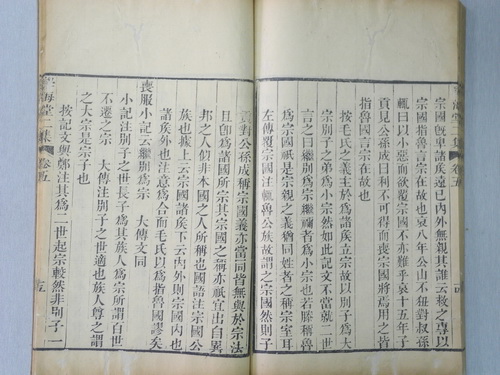 宗國既卑諸矦遠已內外無親其誰云救之專以
宗國指魯言宗在故也哀八年公山不狃對叔孫
輒曰以小惡而欲覆宗國不亦難乎哀十五年子
貢見公孫成曰利不可得而喪宗國將焉用之皆
指魯國言宗在故也
按毛氏之義主於爲諸矦立宗故以別子爲大
宗別子之弟爲小宗然如此記文不當就二世
言之曰繼別爲宗繼禰者爲小宗也若滕稱魯
爲宗國祇是宗親之義猶同姓者之稱宗室耳
左傳覆宗國注輒魯公族故謂之宗國然則子
貢對公孫成稱宗國義亦當同皆無與於宗法
且卽爲諸國所宗其宗國之稱亦祇宜出自異
邦之人非本國之人所稱也國語注宗國公
族也據上云宗國諸矦下云內外則宗國內也
諸矦外也注意爲合而毛氏以爲指魯國謬矣
喪服小記云繼別爲宗 大傳文同
小記注別子之世長子爲其族人爲宗所謂百世
不遷之宗 大傳注別子之世適也族人尊之謂
之大宗是宗子也
按記文與鄭注其爲二世起宗較然非別子一
海堂二集 卷五